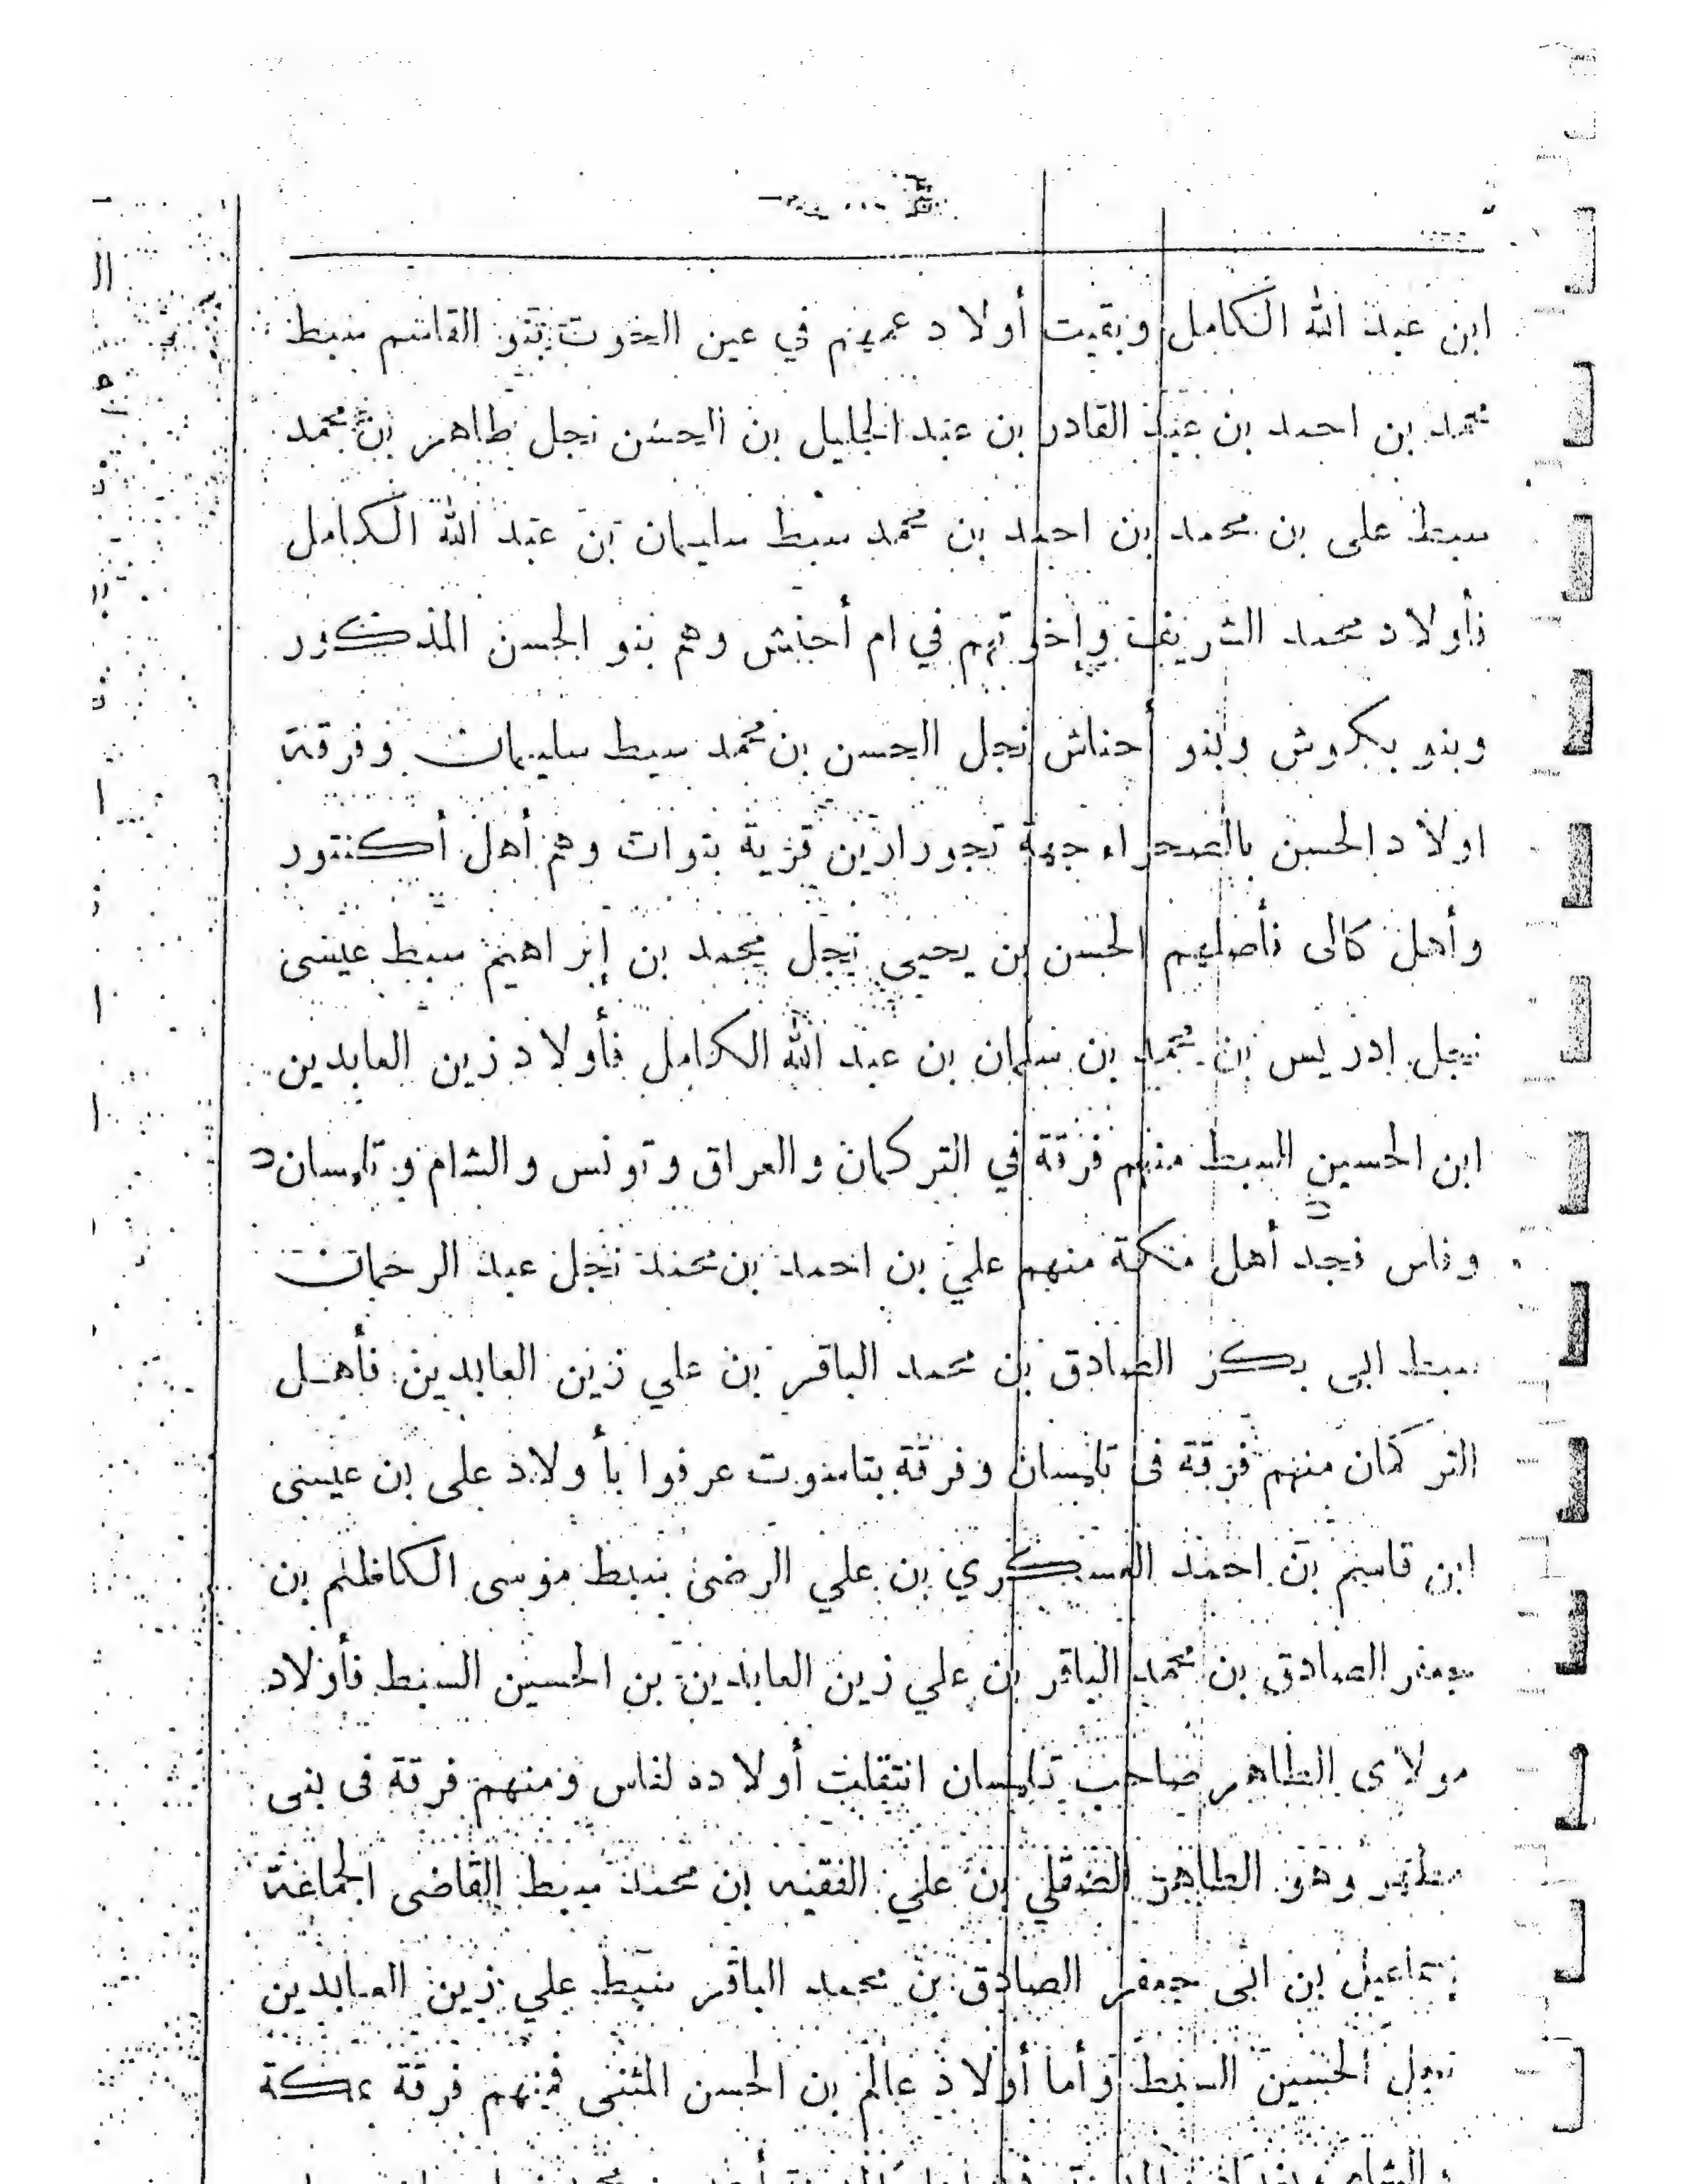 ابن عبد الله الكامل وبقيت أولاد عمهم في عين الحوت بنو القاسم سبط
محمد بن احمد بن عبد القادر بن عبد الجليل بن الحسن نجل طاهر بن محمد
سبط على بن محمد بن احمد بن محمد سبط سليمان بن عبد الله الكامل
فأولاد محمد الشريف وإخوتهم في ام أحنش وهم بنو الحسن المذكور
وبنو بكروش وبنو أحناش نجل الحسن بن محمد سبط سليمان وفرقة
اولاد الحسن بالصحراء جهة تجورارين قرية بتوات وهم أهل أكنتور
وأهل كالى فأصلهم الحسن بن يحيى نجل محمد بن إبراهيم سبط عيسى
نجل ادريس بن محمد بن سليمان بن عبد الله الكامل فأولاد زين العابدين
ابن الحسين السبط منهم فرقة في التركمان والعراق وتونس والشام وتلمسان
وفاس فجد أهل مكة منهم علي بن احمد بن محمد نجل عبد الرحمان
سبط ابى بكر الصادق بن محمد الباقر بن علي زين العابدين فأهل
التركمان منهم فرقة فى تلمسان وفرقة بتاسوت عرفوا بأولاد على بن عيسى
ابن قاسم بن احمد العسكري بن علي الرضى سبط موسى الكاظم بن
جعفر الصادق بن محمد الباقر بن علي زين العابدين بن الحسين السبط فأولاد
مولاى الطاهر صاحب تلمسان انتقلت أولاده لفاس ومنهم فرقة فى بنى
مطهر وهو الطاهر الصقلي بن علي الفقيه بن محمد سبط القاضى الجماعة
إسماعيل بن ابى جعفر الصادق بن محمد الباقر سبط علي زين العابدين
نجل الحسين السبط وأما أولاد عالم بن الحسن المثنى فمنهم فرقة بمكة